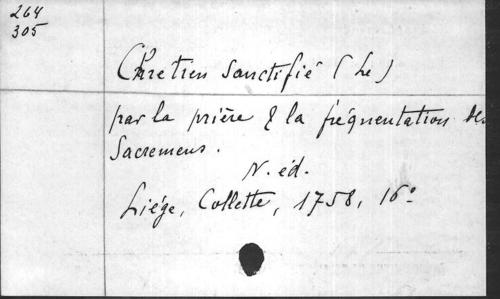 264
305
Chretien Sanctifié (Le)
par la prière & la fréquentation des
Sacremens.
N. éd.
Liége, Collette, 1758, 16°